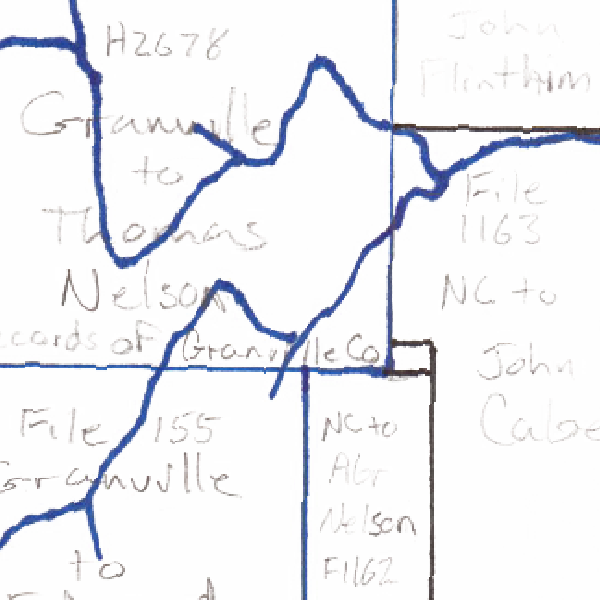 H2678
Granville
to
Thomas
Nelson
ecords of Granville Co
John
Flinthim
File
1163
NC to
John
Cabe
File 155
Granville
to
NC to
Abr
Nelson
F1162